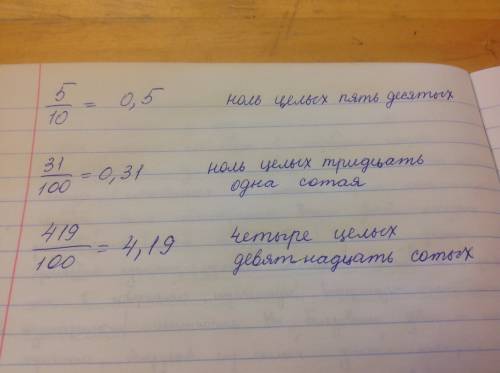 5/10 = 0,5 ноль целых пять десятых
31/100 = 0,31 ноль целых тридцать
одна сотая
419/100 = 4,19 четыре целых
девятнадцать сотых